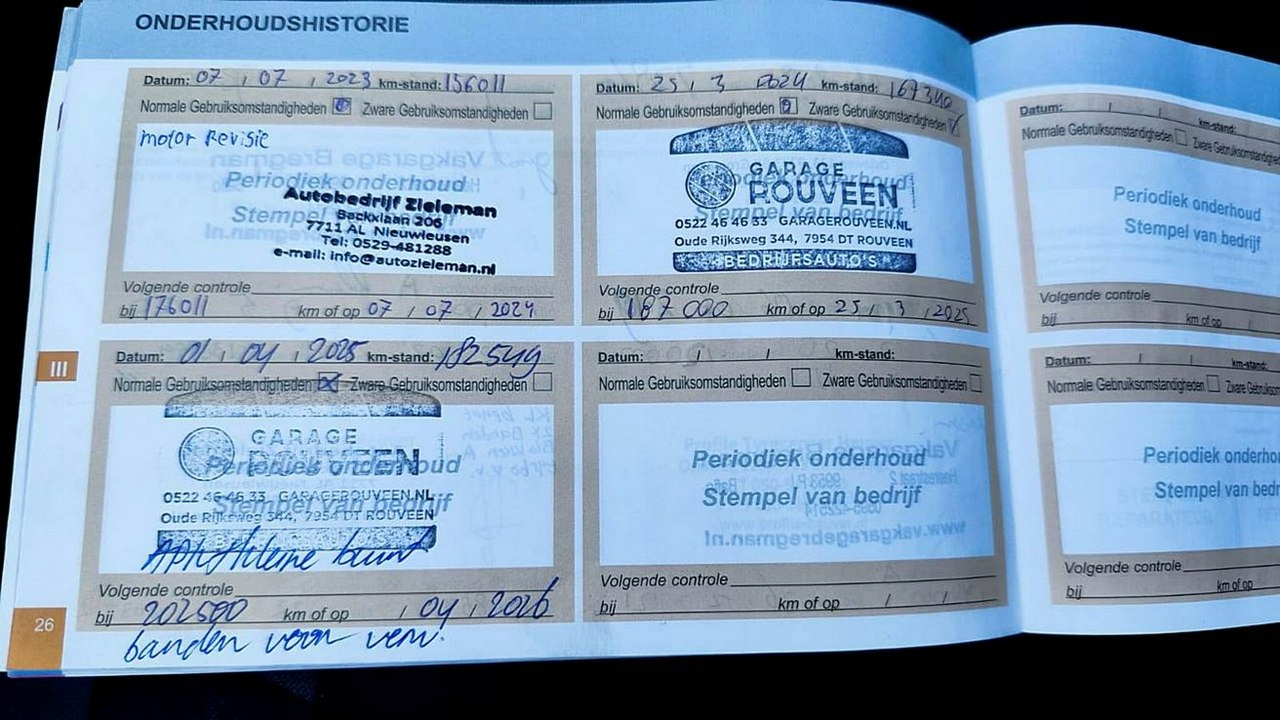 ONDERHOUDSHISTORIE
Datum: 07 / 07 / 2023 km-stand: 156011
Normale Gebruiksomstandigheden Zware Gebruiksomstandigheden
motor Revisie
Periodiek onderhoud
Stempel van bedrijf
Autobedrijf Zieleman
Backxlaan 206
7711 AL Nieuwleusen
Tel: 0529-481288
e-mail: info@autozieleman.nl
Volgende controle
bij 176011 km of op 07 / 07 / 2024
Datum: 25 / 3 / 2024 km-stand: 167340
Normale Gebruiksomstandigheden Zware Gebruiksomstandigheden
GARAGE
ROUVEEN
Periodiek onderhoud
Stempel van bedrijf
0522 46 46 33 GARAGEROUVEEN.NL
Oude Rijksweg 344, 7954 DT ROUVEEN
BEDRIJFSAUTO'S
Volgende controle
bij 187 000 km of op 25 / 3 / 2025
Datum: 01 / 04 / 2025 km-stand: 182549
Normale Gebruiksomstandigheden Zware Gebruiksomstandigheden
GARAGE
ROUVEEN
Periodiek onderhoud
Stempel van bedrijf
0522 46 46 33 GARAGEROUVEEN.NL
Oude Rijksweg 344, 7954 DT ROUVEEN
APK + kleine beurt
Volgende controle
bij 202500 km of op / 04 / 2026
banden voor verv.
Datum: / / km-stand:
Normale Gebruiksomstandigheden Zware Gebruiksomstandigheden
Periodiek onderhoud
Stempel van bedrijf
Volgende controle
bij km of op / /
III
26
Datum: / / km-stand:
Normale Gebruiksomstandigheden Zware Gebruiksomstandighede
Periodiek onderhoud
Stempel van bedrijf
Volgende controle
bij km of op /
Datum: / / km-stand:
Normale Gebruiksomstandigheden Zware Gebruiks
Periodiek onderho
Stempel van bedr
Volgende controle
bij km of op